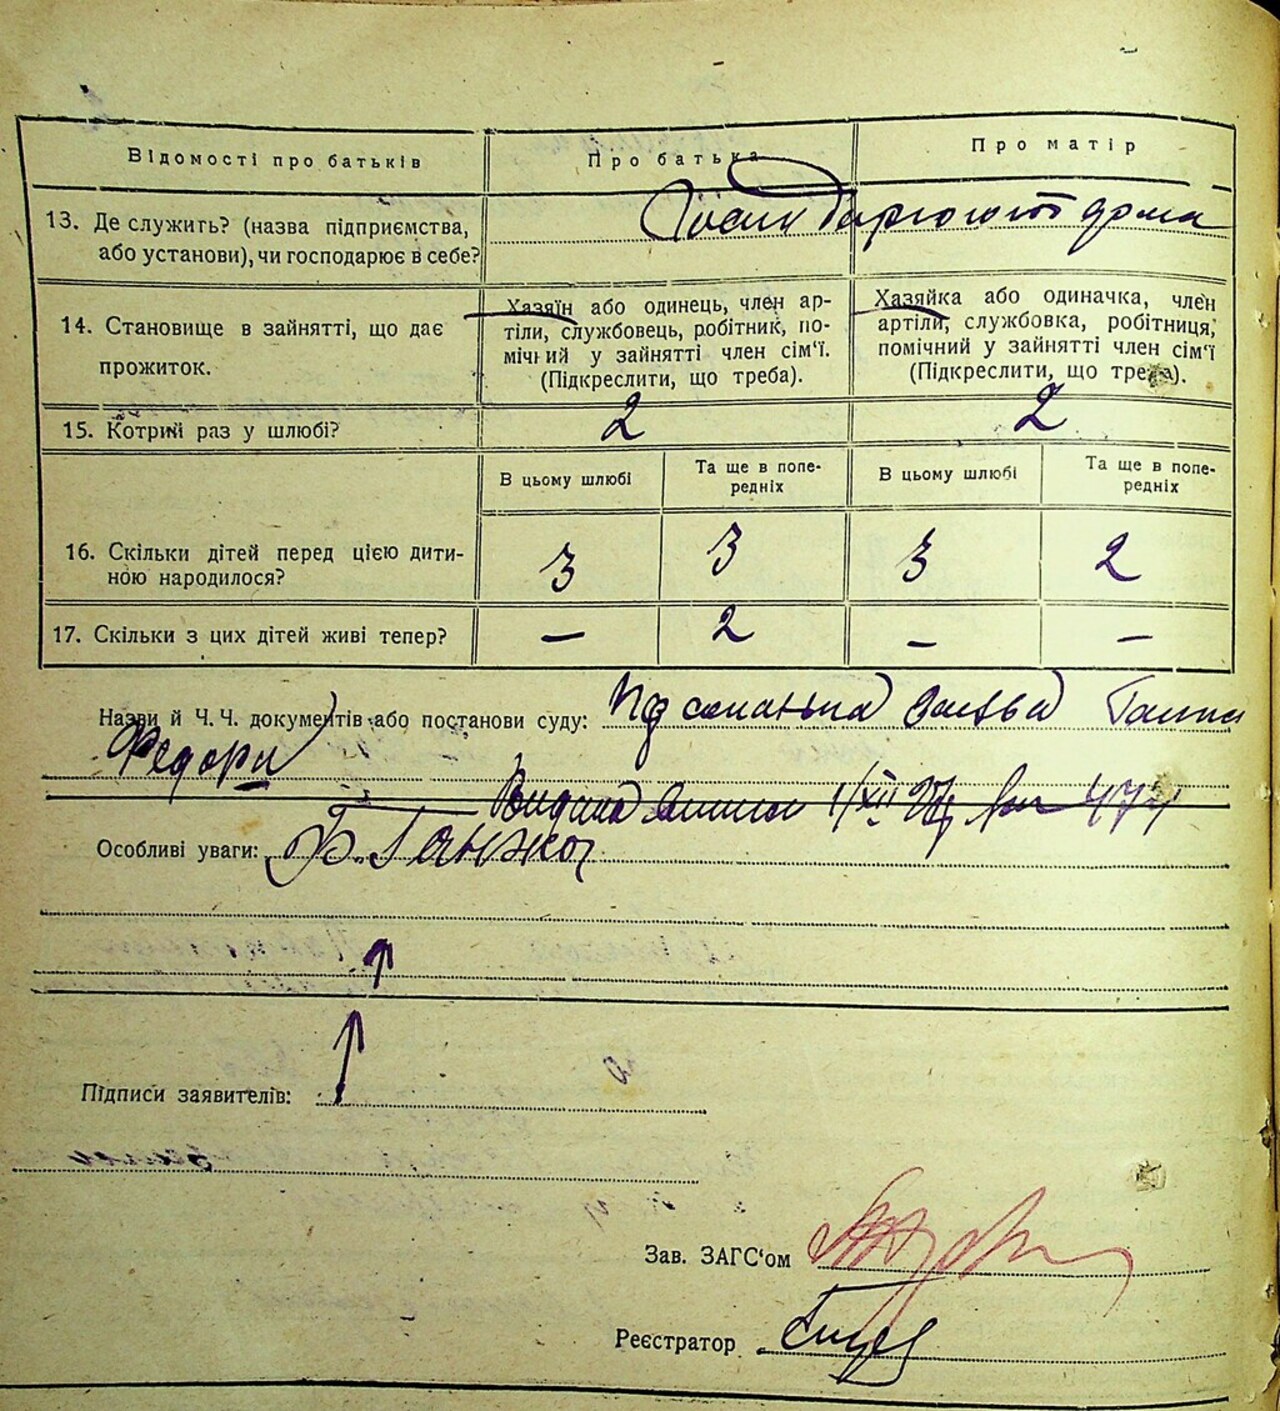 Відомості про батьків
Про батька
Про матір
13. Де служить? (назва підприємства, або установи), чи господарює в себе?
дома
14. Становище в зайнятті, що дає прожиток.
Хазяїн або одинець, член ар-
тіли, службовець, робітник, по-
мічний у зайнятті член сім'ї.
(Підкреслити, що треба).
Хазяйка або одиначка, член
артіли, службовка, робітниця,
помічний у зайнятті член сім'ї
(Підкреслити, що треба).
15. Котрий раз у шлюбі?
2
2
В цьому шлюбі
Та ще в попе-
редніх
В цьому шлюбі
Та ще в попе-
редніх
16. Скільки дітей перед цією дити-
ною народилося?
3
3
3
2
17. Скільки з цих дітей живі тепер?
—
2
—
—
Назви й Ч.Ч. документів або постанови суду:
Федори
Видана 1/XII
Особливі уваги: Ганжа
Підписи заявителів:
Зав. ЗАГС'ом
Реєстратор